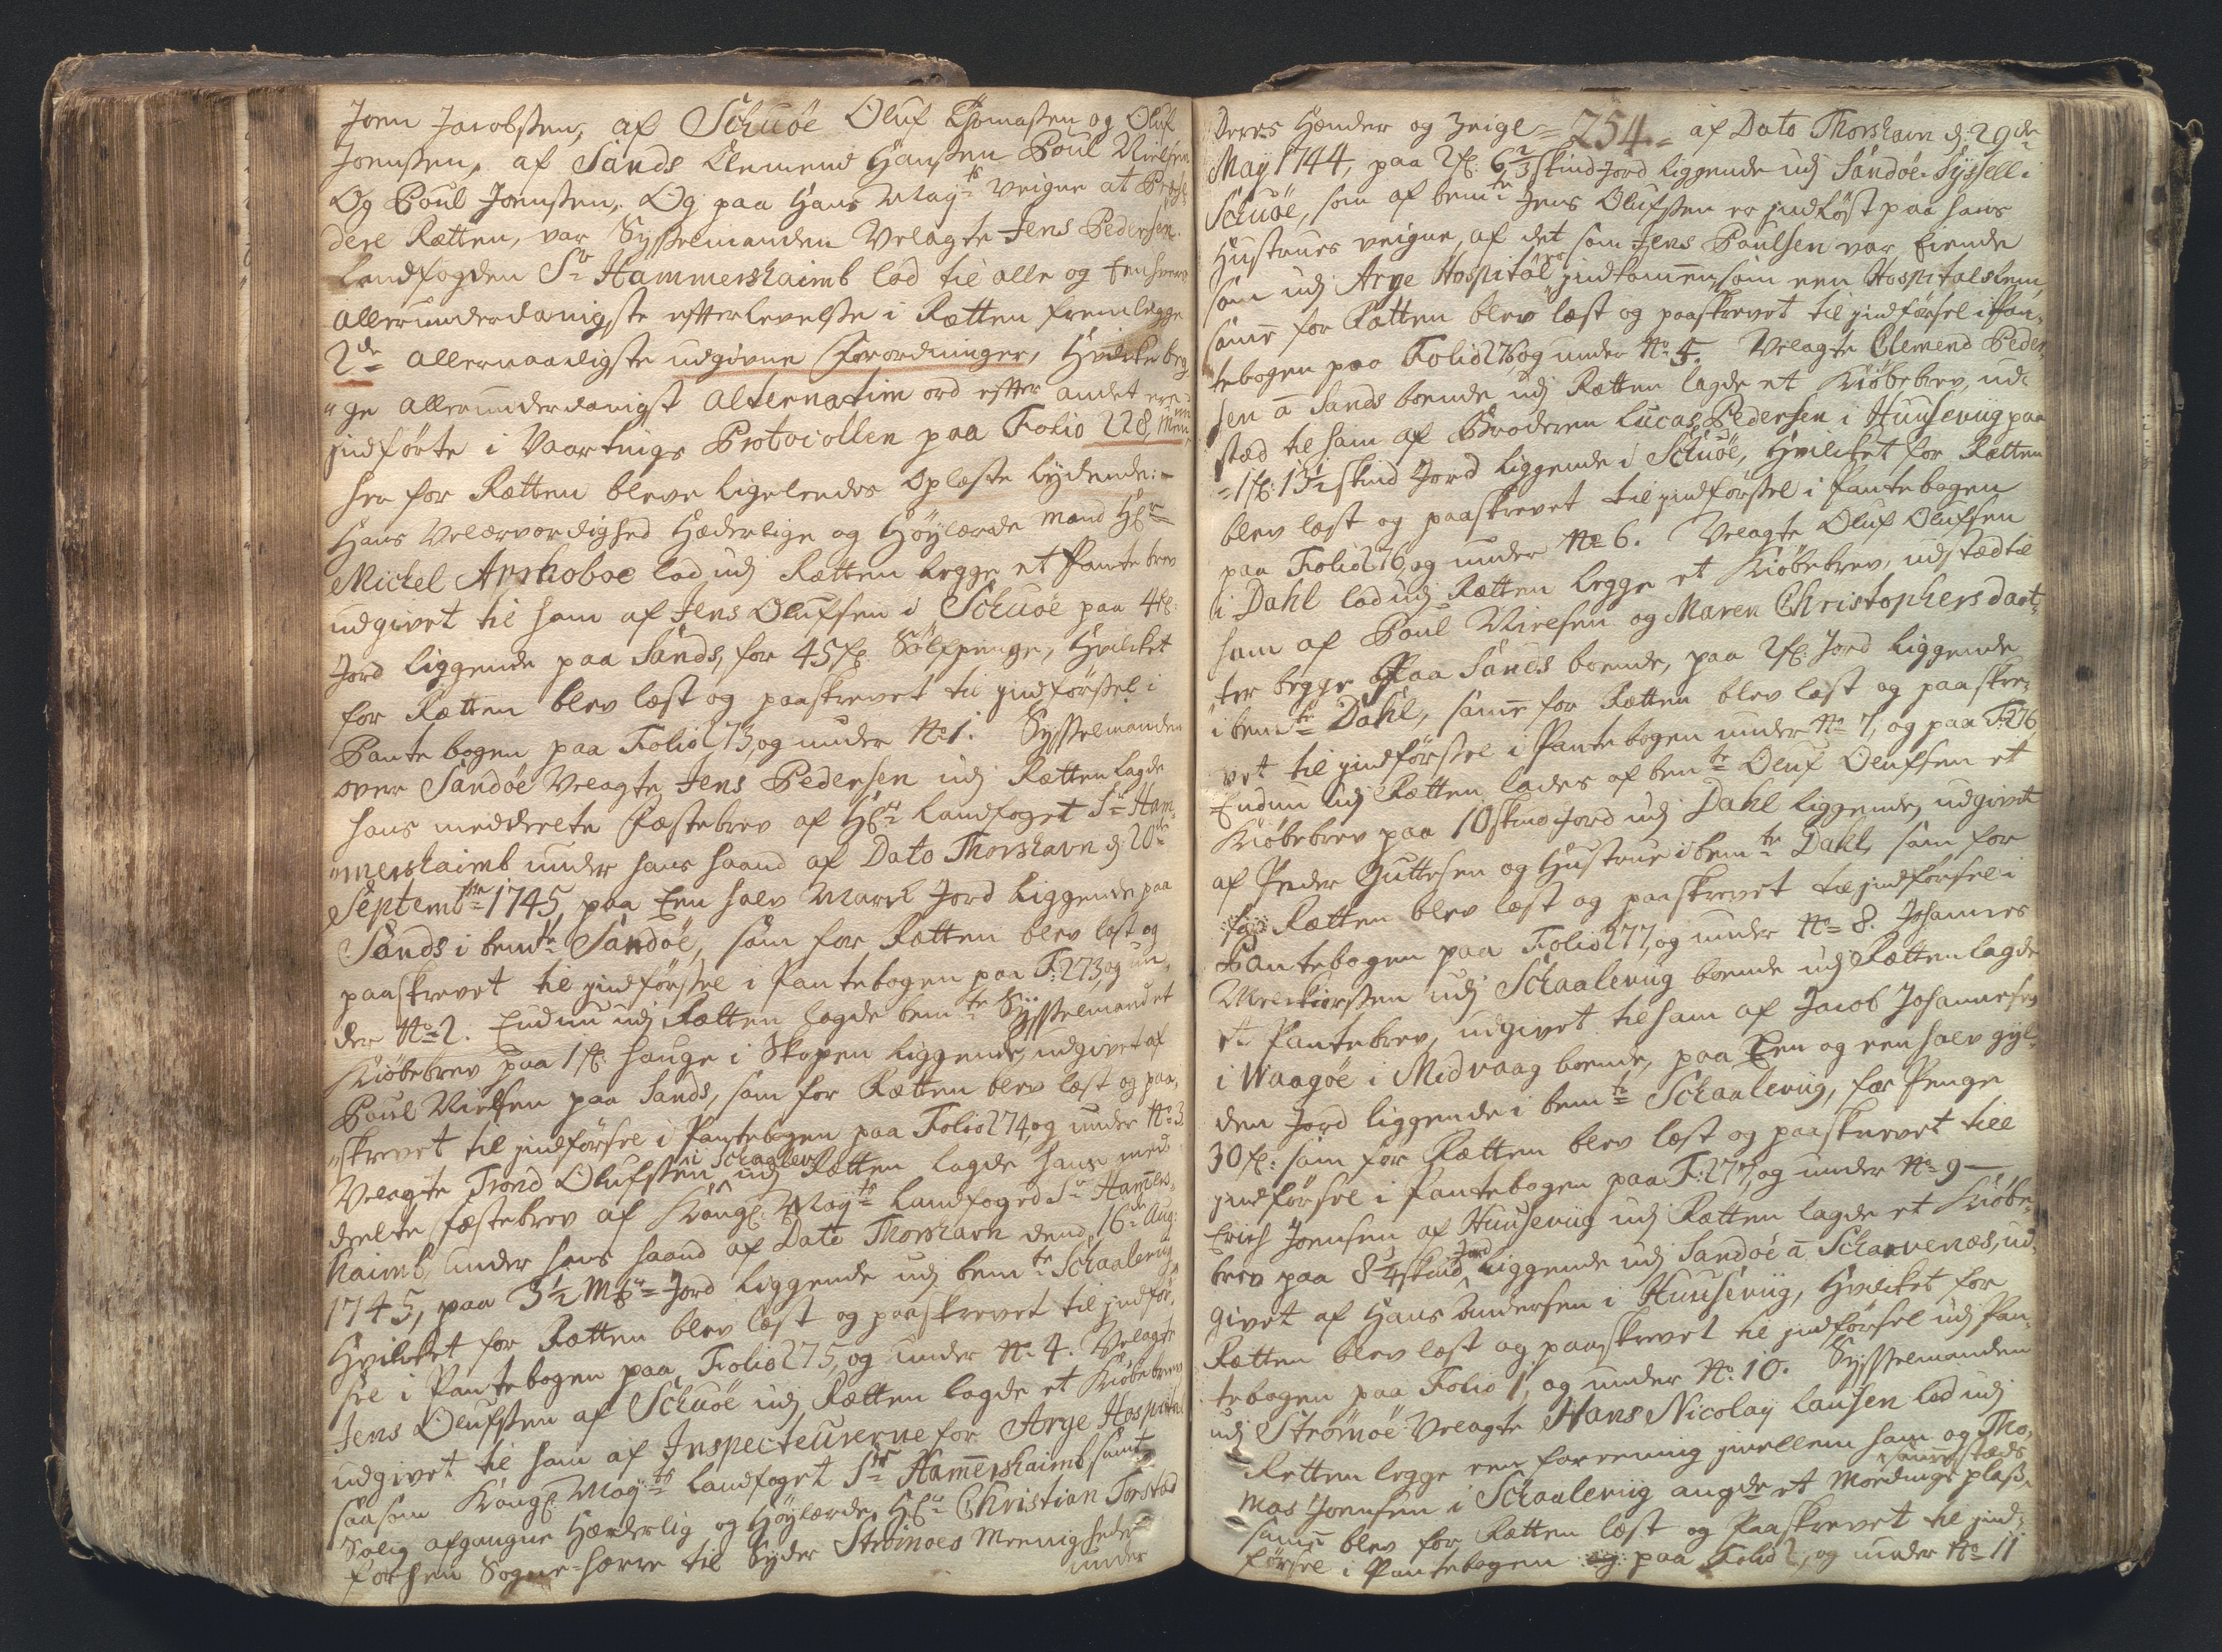 Joen Jacobssen, af Schuøe Oluf Thomassen og Oluf
Joenssen, af Sands Clemend Hanssen Poul Nielsen
Og Poul Joenssen. Og paa Hans Mayts veigne at
dere Rætten, var Sysselmanden Velagte Jens Pedersen.
Landfogden Sr Hammershaimb lod til alle og Eenhvers
allerunderdanigste efterlevelse i Rætten fremlegge
2de allernaadigste udgivne Forordninger, Hvilcke beg
"ge allerunderdanigst alternatim ord efter andet ere
indførte i Vaartings Protocollen paa Folio 228,
her for Rætten bleve ligeledes Oplæste lydende:
Hans Velærværdighed Hæderlige og Høylærde Mand Hr
Michel Arhoboe lod udj Rætten legge et Pantebrev
udgivet til ham af Jens Olufsen i Schuøe paa 4 f:
Jord liggende paa Sands, for 45 f: Sølfpenge, Hvilcket
for Rætten blev læst og paaskrevet til jndførssel i
Pantebogen paa Folio 273, og under No 1. Sysselmanden
over Sandøe Velagte Jens Pedersen udj Rætten lagde
hans meddeelte Fæstebrev af Hr Landfoget Sr Ham¬
"mershaimb under hans haand af Dato Thorshavn d: 20de
Septembr 1745, paa Een halv Marck Jord liggende paa
Sands i bemte Sandøe, som for Rætten blev læst og
paaskrevet til jndførssel i Pantebogen paa F: 273, og un¬
der No 2. Endnu udj Rætten lagde bemte Sysselmand et
Kiøbebrev paa 1 f: hauge i Skopen liggende, udgivet af
Poul Nielsen paa Sands, som for Rætten blev læst og paa¬
"skrevet til jndførsel i Pantebogen paa Folio 274, og under No 3.
i Schaalevig
Velagte Trond Olufssen udj Rætten lagde hans med¬
deelte fæstebrev af Kongl: Mayts Landfoged Sr Hamers¬
haimb, under hans haand af Dato Thorshavn dend 16de Aug:
1745, paa 3½ Mk Jord liggende udj bemte Schaalevig
Hvilcket for Rætten blev læst og paaskrevet til jndfør¬
sel i Pantebogen paa Folio 275, og under No 4. Velagte
Jens Olufssen af Schuøe udj Rætten lagde et Kiøbebrev
udgivet til ham af Inspecteurerne for Arge Hospital
saasom Kongl: Mayts Landfoget Sr Hamershaimb samt
Salig afgangne Hæderlig og Høylærde Hr Christian Torstad
forhen Sogne-herre til Syder Strømøes Meenigheder
under
Deres Hænder og Zeigl = 254 = af Dato Thorshavn d: 29de
May 1744, paa 2 f: 6⅔ skind Jord liggende udj Sandøe Syssell i
Schuøe, som af bemte Jens Olufssen er jndløst paa hans
Hustrues veigne, af det som Jens Poulsen var Eiende
som udj Arge Hospital er jndkommen som een Hospitalslem,
same for Rætten blev læst og paaskrevet til jndførsel i Pan¬
tebogen paa Folio 276, og under No 5. Velagte Clemend Peder¬
sen a Sands boende udj Rætten lagde et Kiøbebrev, ud¬
stæd til ham af Broderen Lucas Pedersen i Huusevig paa
= 1 f: 13½ skind Jord liggende i Schuøe, Hvilcket for Rætten
blev læst og paaskrevet til jndførssel i Pantebogen
paa Folio 276, og under No 6. Velagte Oluf Olufsen
i Dahl lod udj Rætten legge et Kiøbebrev, udstæd til
ham af Poul Nielsen og Maren Christophersdaat¬
"ter begge Paa Sands boende, paa 2 f: Jord liggende
i bemte Dahl, same for Rætten blev læst og paaskre¬
vet til jndførssel i Pantebogen under No 7, og paa F: 276
Endnu udj Rætten lades af bente Oluf Olufsen et
Kiøbebrev paa 10 skind Jord udj Dahl liggende, udgivet
af Peder Guttesen og Hustrue i bemte Dahl, som for
Rætten blev læst og paaskrevet til jndførsel i
Pantebogen paa Folio 277, og under No 8. Johannes
Melchiorssen udj Schaalevig boende udj Rætten lagde
et Pantebrev, udgivet til ham af Jacob Johannesen
i Waagøe i Midvaag boende, paa Een og een halv gyl¬
den Jord liggende i bemte Schaalevig, for Penge
30 f: som for Rætten blev læst og paaskrevet till
jndførsel i Pantebogen paa F: 277, og under No 9 —
Erich Joensen af Huusevig udj Rætten lagde et Kiøbe¬
brev paa 8¾ skind Jord liggende udj Sandøe a Scharvenæs, ud¬
givet af Hans Andersen i Huusevig, Hvilcket for
Rætten blev læst og paaskrevet til jndførsel udj Pan¬
tebogen paa Folio 1, og under No 10. Sysselmanden
udj Strømøe Velagte Hans Nicolay Lausen lod udj
Retten legge een foreening jmellem ham og Tho¬
mas Joensen i Schaalevig angde et Mordings plads,
samestæds
same blev for Rætten læst og Paaskrevet til jnd¬
førsel i Pantebogen paa Folio 2, og under No 11